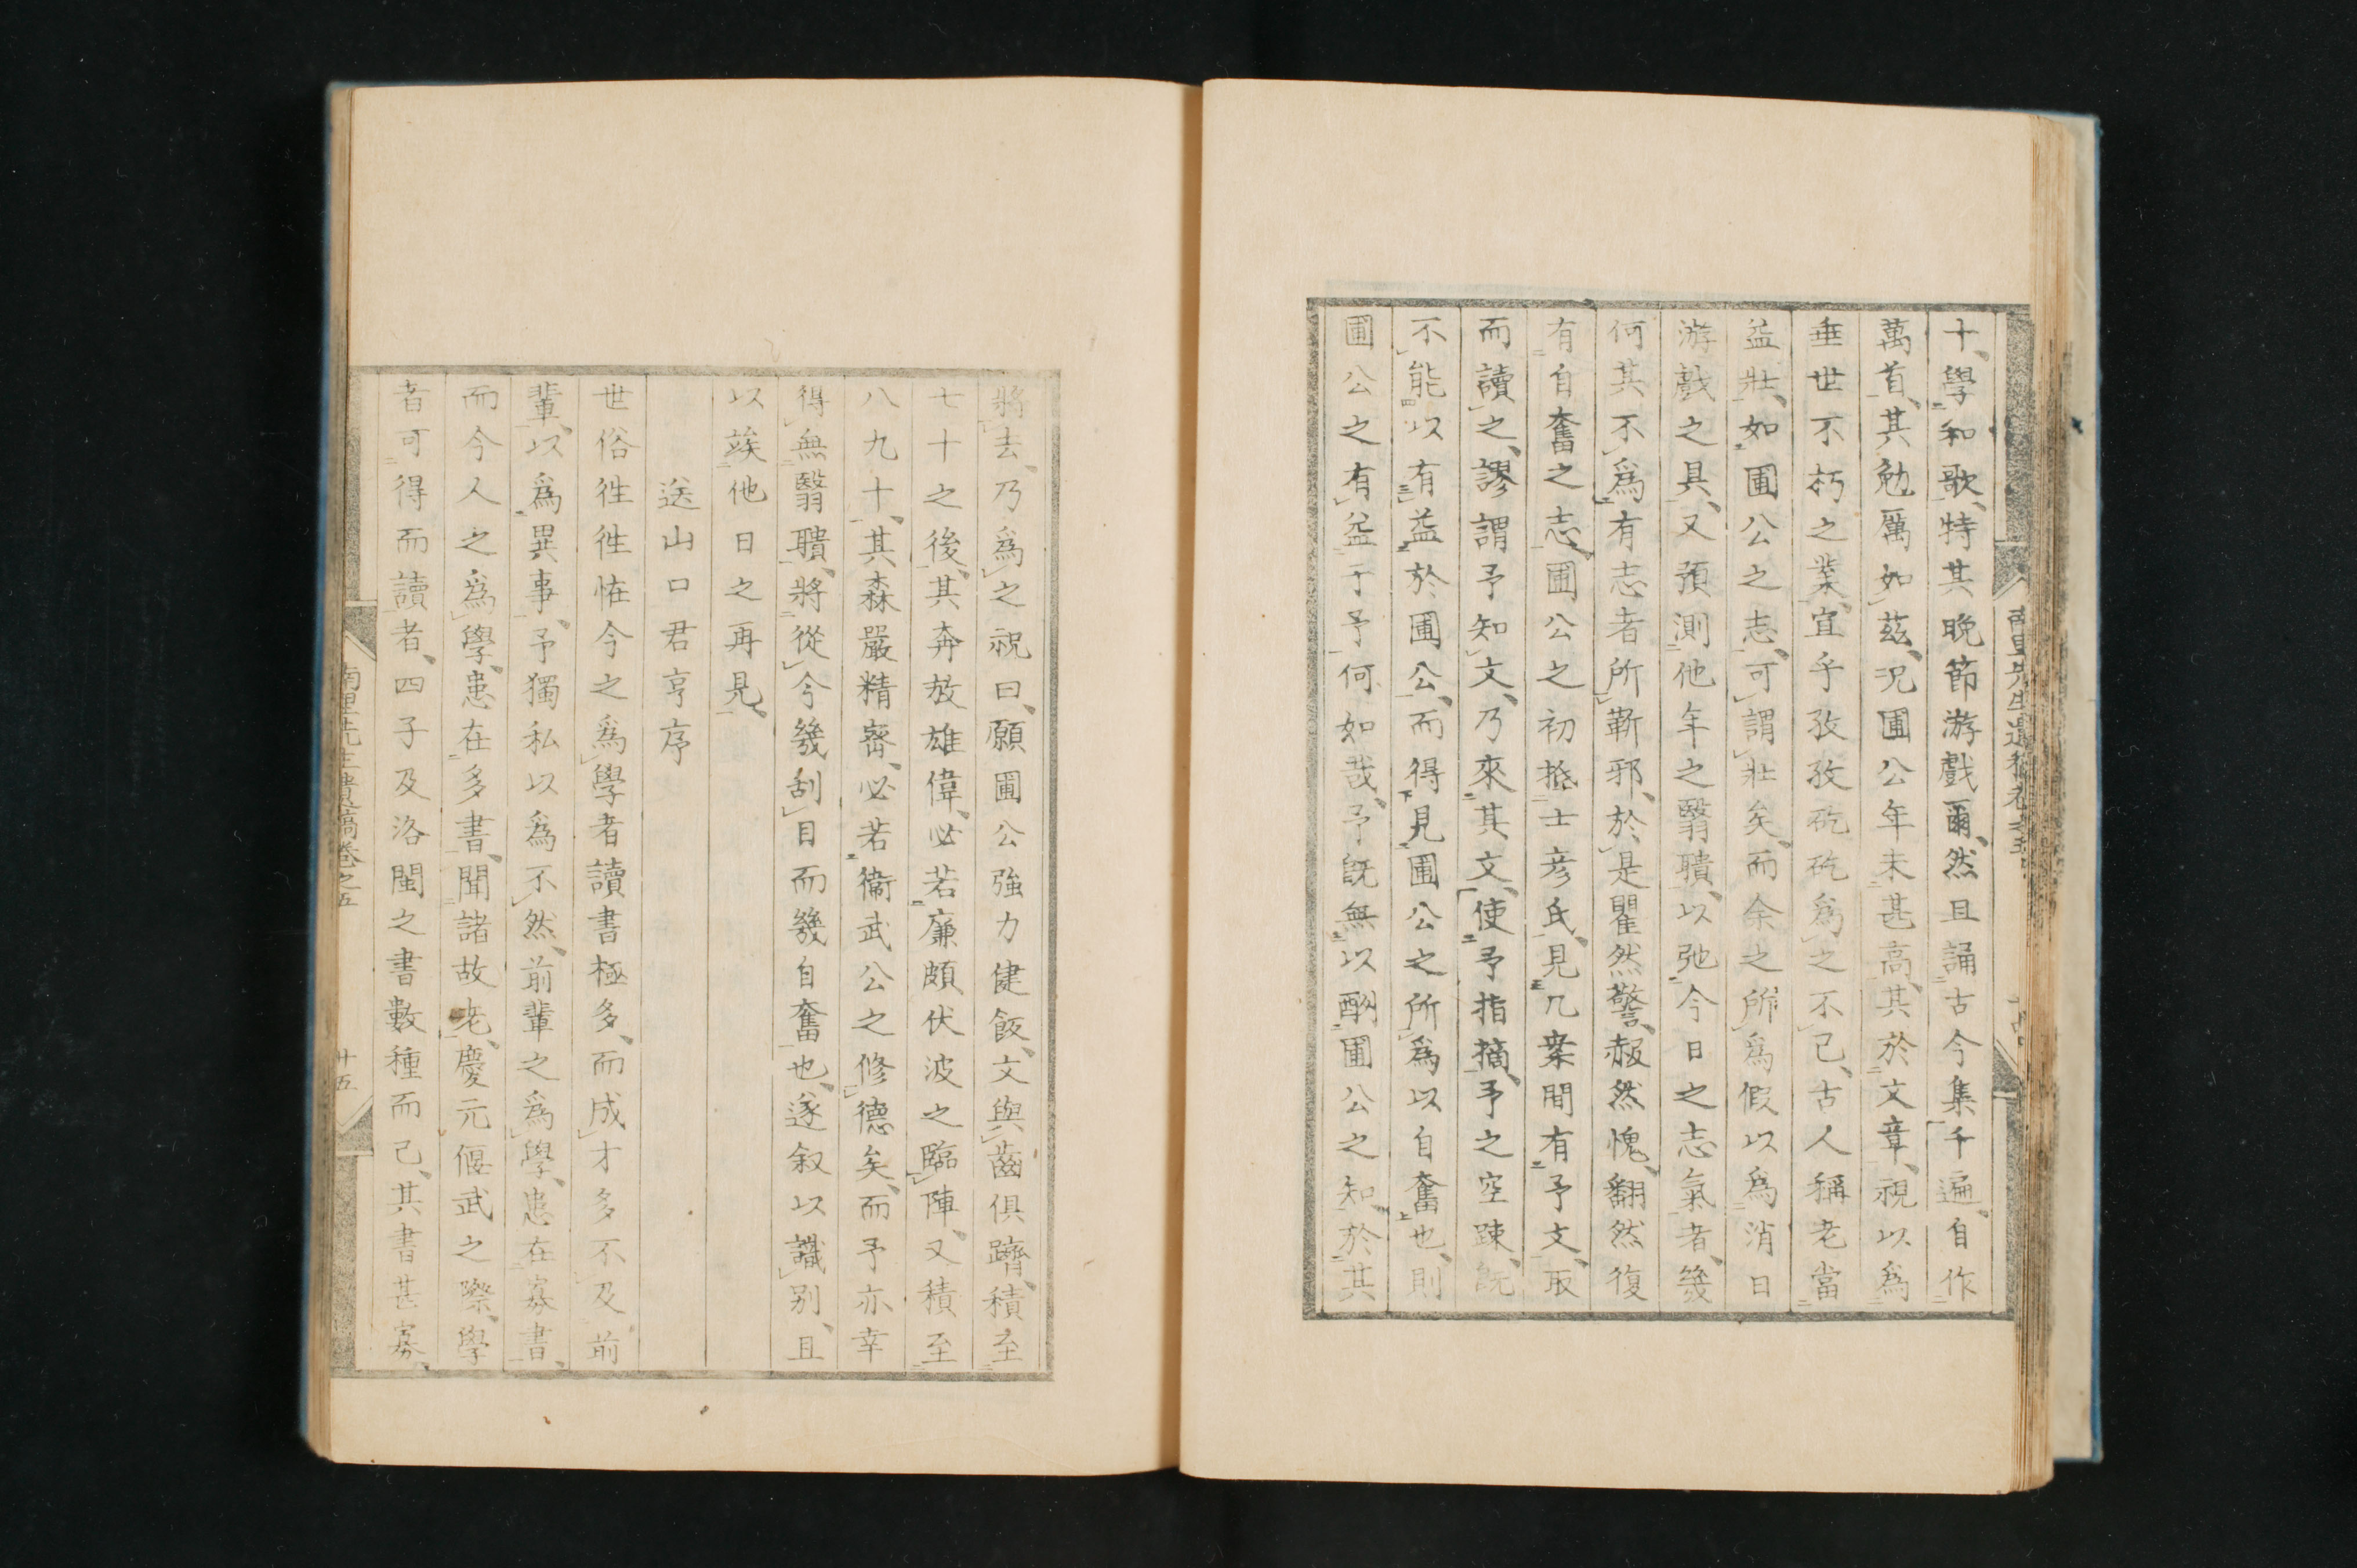 十、學和歌、特其晩節游戲爾、然且誦古今集千遍、自作
萬首、其勉厲如茲、況圃公年未甚高、其於文章、視以爲
垂世不朽之業、宜乎孜孜矻矻爲之不已、古人稱老當
益壯、如圃公之志、可謂壯矣、而余之所爲假以爲消日
游戲之具、又預測他年之翳聵、以弛今日之志氣者、幾
何其不爲有志者所蘄邪、於是瞿然警、赧然愧、翻然復
有自奮之志、圃公之初抵士彦氏、見几案間有予文、取
而讀之、謬謂予知文、乃來其文、使予指摘、予之空疎、既
不能以有益於圃公、而得見圃公之所爲以自奮也、則
圃公之有益于予何如哉、予既無以酬圃公之知、於其
南里先生遺稿卷之五
將去、乃爲之祝曰、願圃公強力健飯、文與齒俱躋、積至
七十之後、其奔放雄偉、必若廉頗伏波之臨陣、又積至
八九十、其森嚴精密、必若衞武公之修德矣、而予亦幸
得無翳聵、將從今幾刮目而幾自奮也、遂叙以識别、且
以竢他日之再見、
送山口君亨序
世俗徃徃恠今之爲學者讀書極多、而成才多不及前
輩、以爲異事、予獨私以爲不然、前輩之爲學、患在寡書、
而今人之爲學、患在多書、聞諸故老、慶元偃武之際、學
者可得而讀者、四子及洛閩之書數種而已、其書甚寡、
南里先生遺稿卷之五
廿五